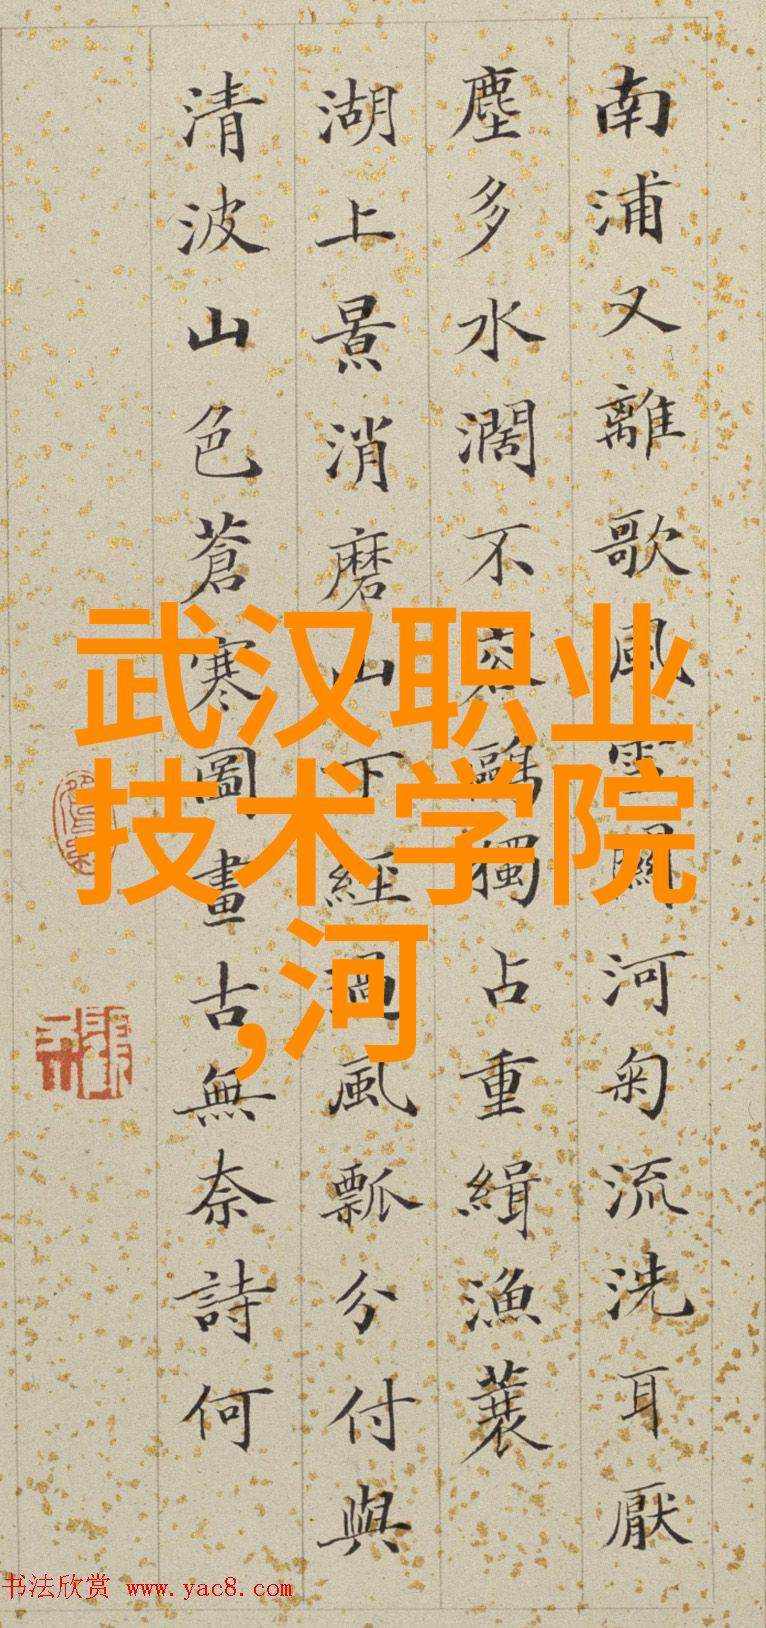 南浦又離歌風雲闊河匊流洗耳厭
塵多水濶不容鷗獨占重緝漁蓑
湖上景消磨山下經過風瓢分付與
清波山色蒼寒圖畫古無奈詩何
武汉职业
技术学院
,河
书法欣赏 www.yac8.com